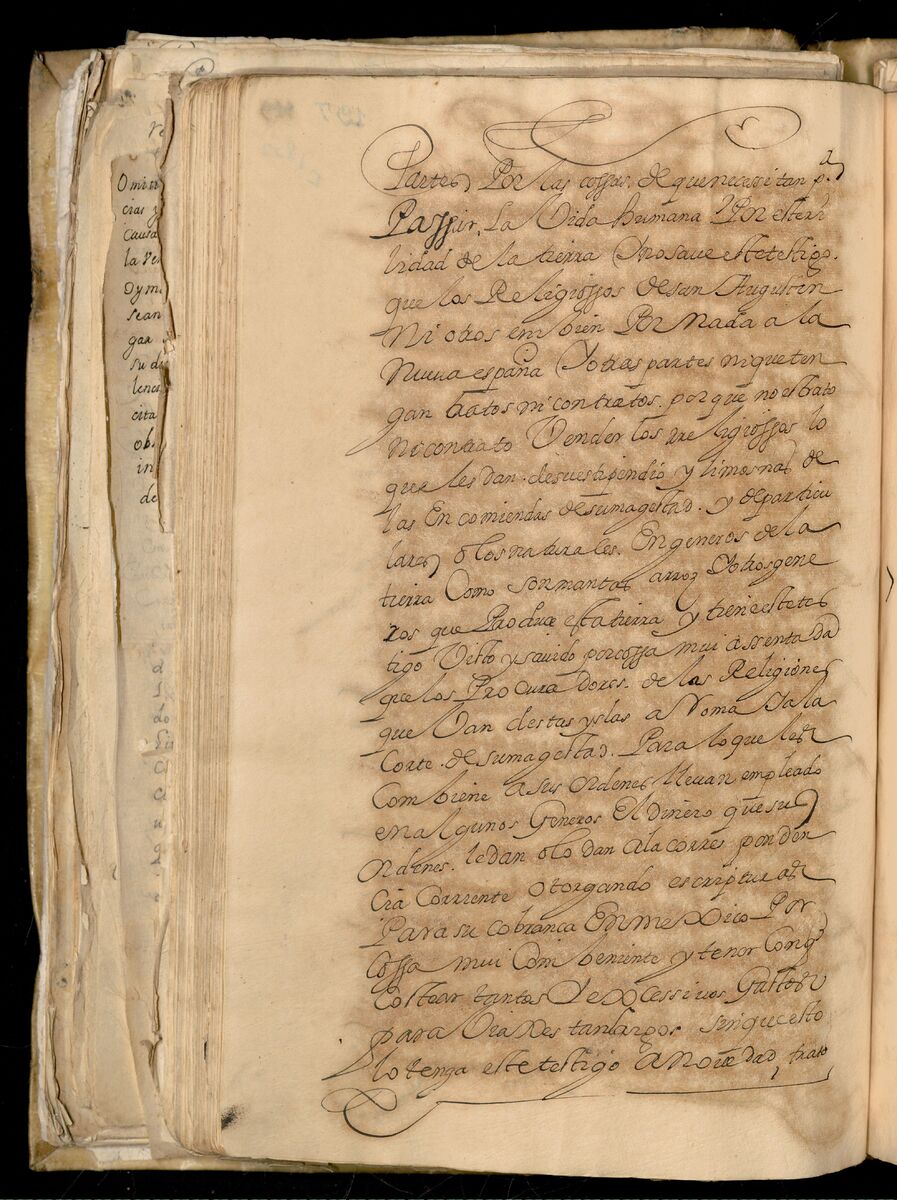 Partes Por las cossas de que necessitan p.ª
Passar La Vida humana Por esteri
lidad de la tierra Y no saue este testigo
que los Religiossos de san Augustin
Ni otros embien Por Nada a la
Nueua españa Y otras partes ni que ten
gan tratos ni contratos porque no es trato
Ni contrato Vender los rreligiossos lo
que les dan de su estipendio y limosnas de
las Encomiendas de su magestad y de particu
lares o los naturales En generos de la
tierra Como son mantas arroz Y otros gene
ros que Produce esta tierra y tiene este tes
tigo Visto y sauido por cossa mui assentada
que los Procuradores de las Religiones
que Van destas yslas a Roma Y a la
Corte de su magestad Para lo que les
Combiene a sus ordenes lleuan empleado
en algunos Generos El dinero que sus
ordenes le dan o lo dan a la correspponden
cia Corriente otorgando escripturas
Para su cobranca En mexico Por
Cossa mui Combeniente y tener Con q
costear tantos Y excessiuos Gastos
para Viaxes tan largos sin que esto
lo tenga este testigo a nouedad trato
Omiti
cias y
causa
la
Dy
sean
gar
su di
lenci
cita
ob
in
de